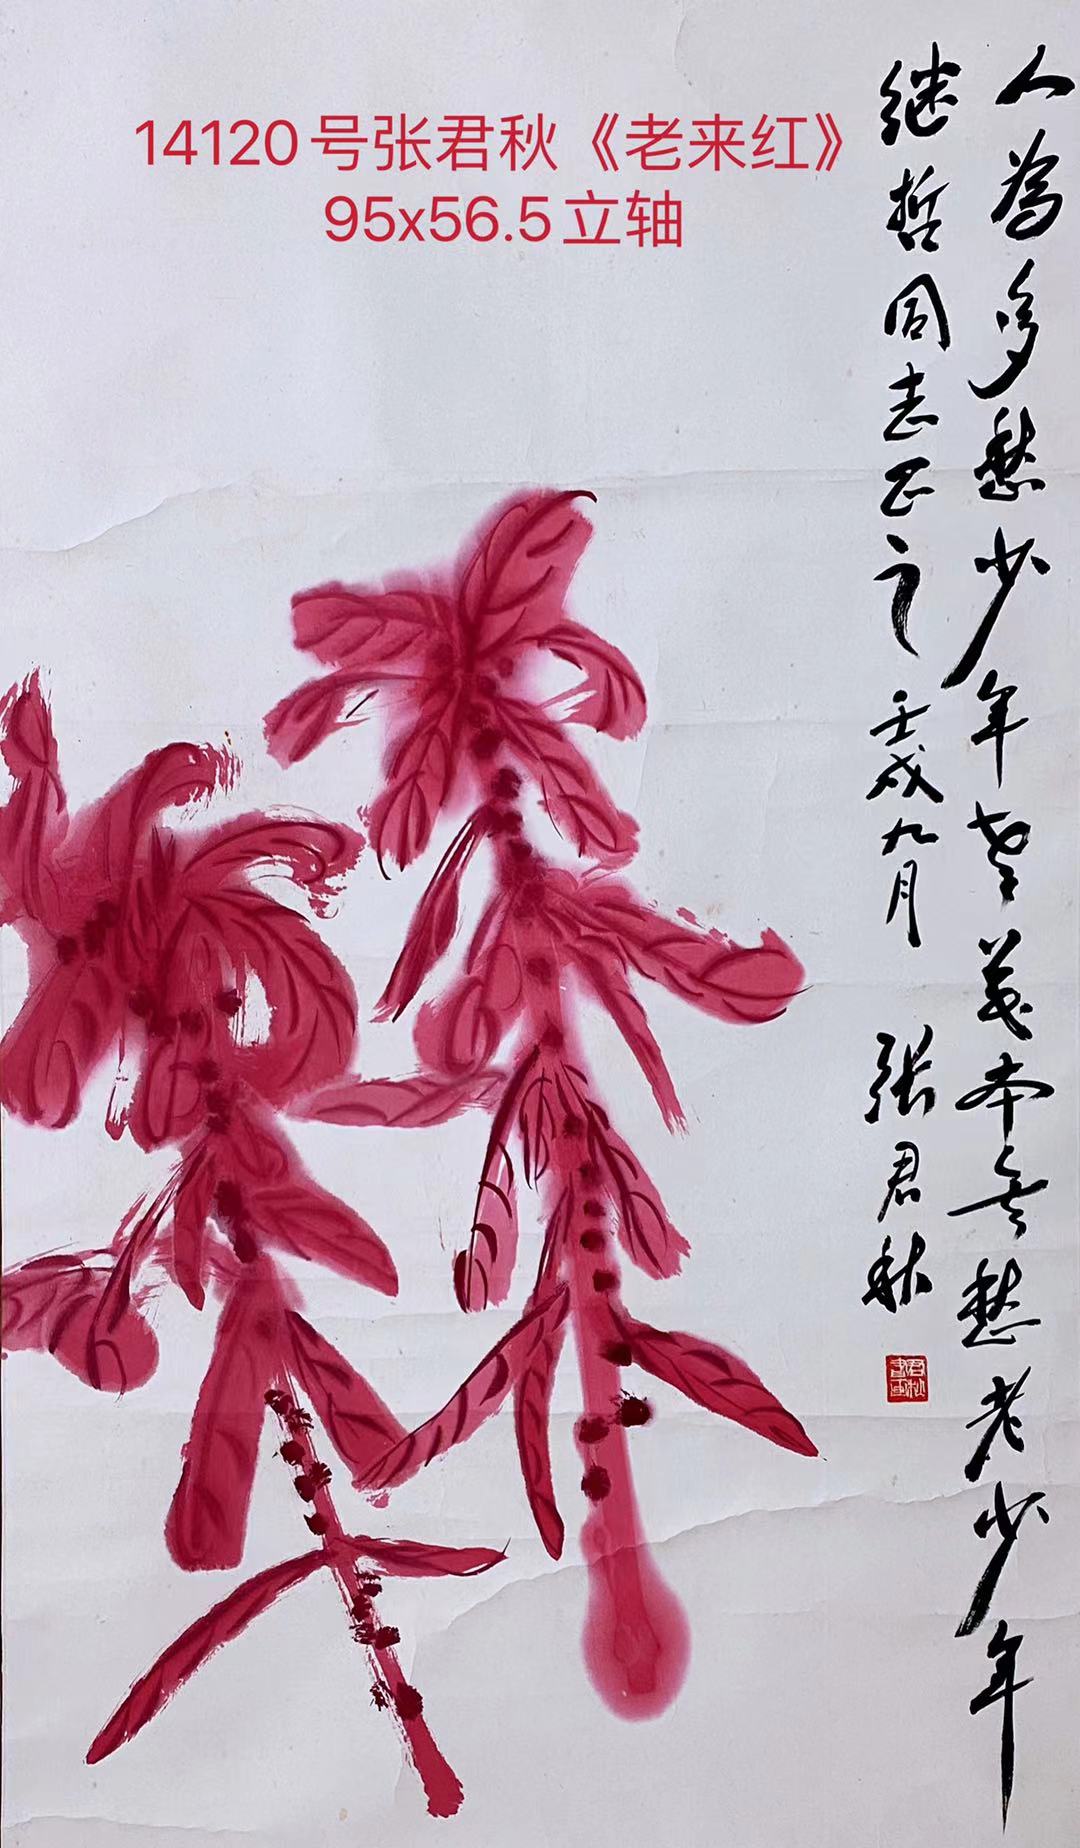 14120号张君秋《老来红》
95x56.5立轴
人為多愁少年老本無愁老少年
继哲同志正之 壬戌九月 张君秋
君秋書画